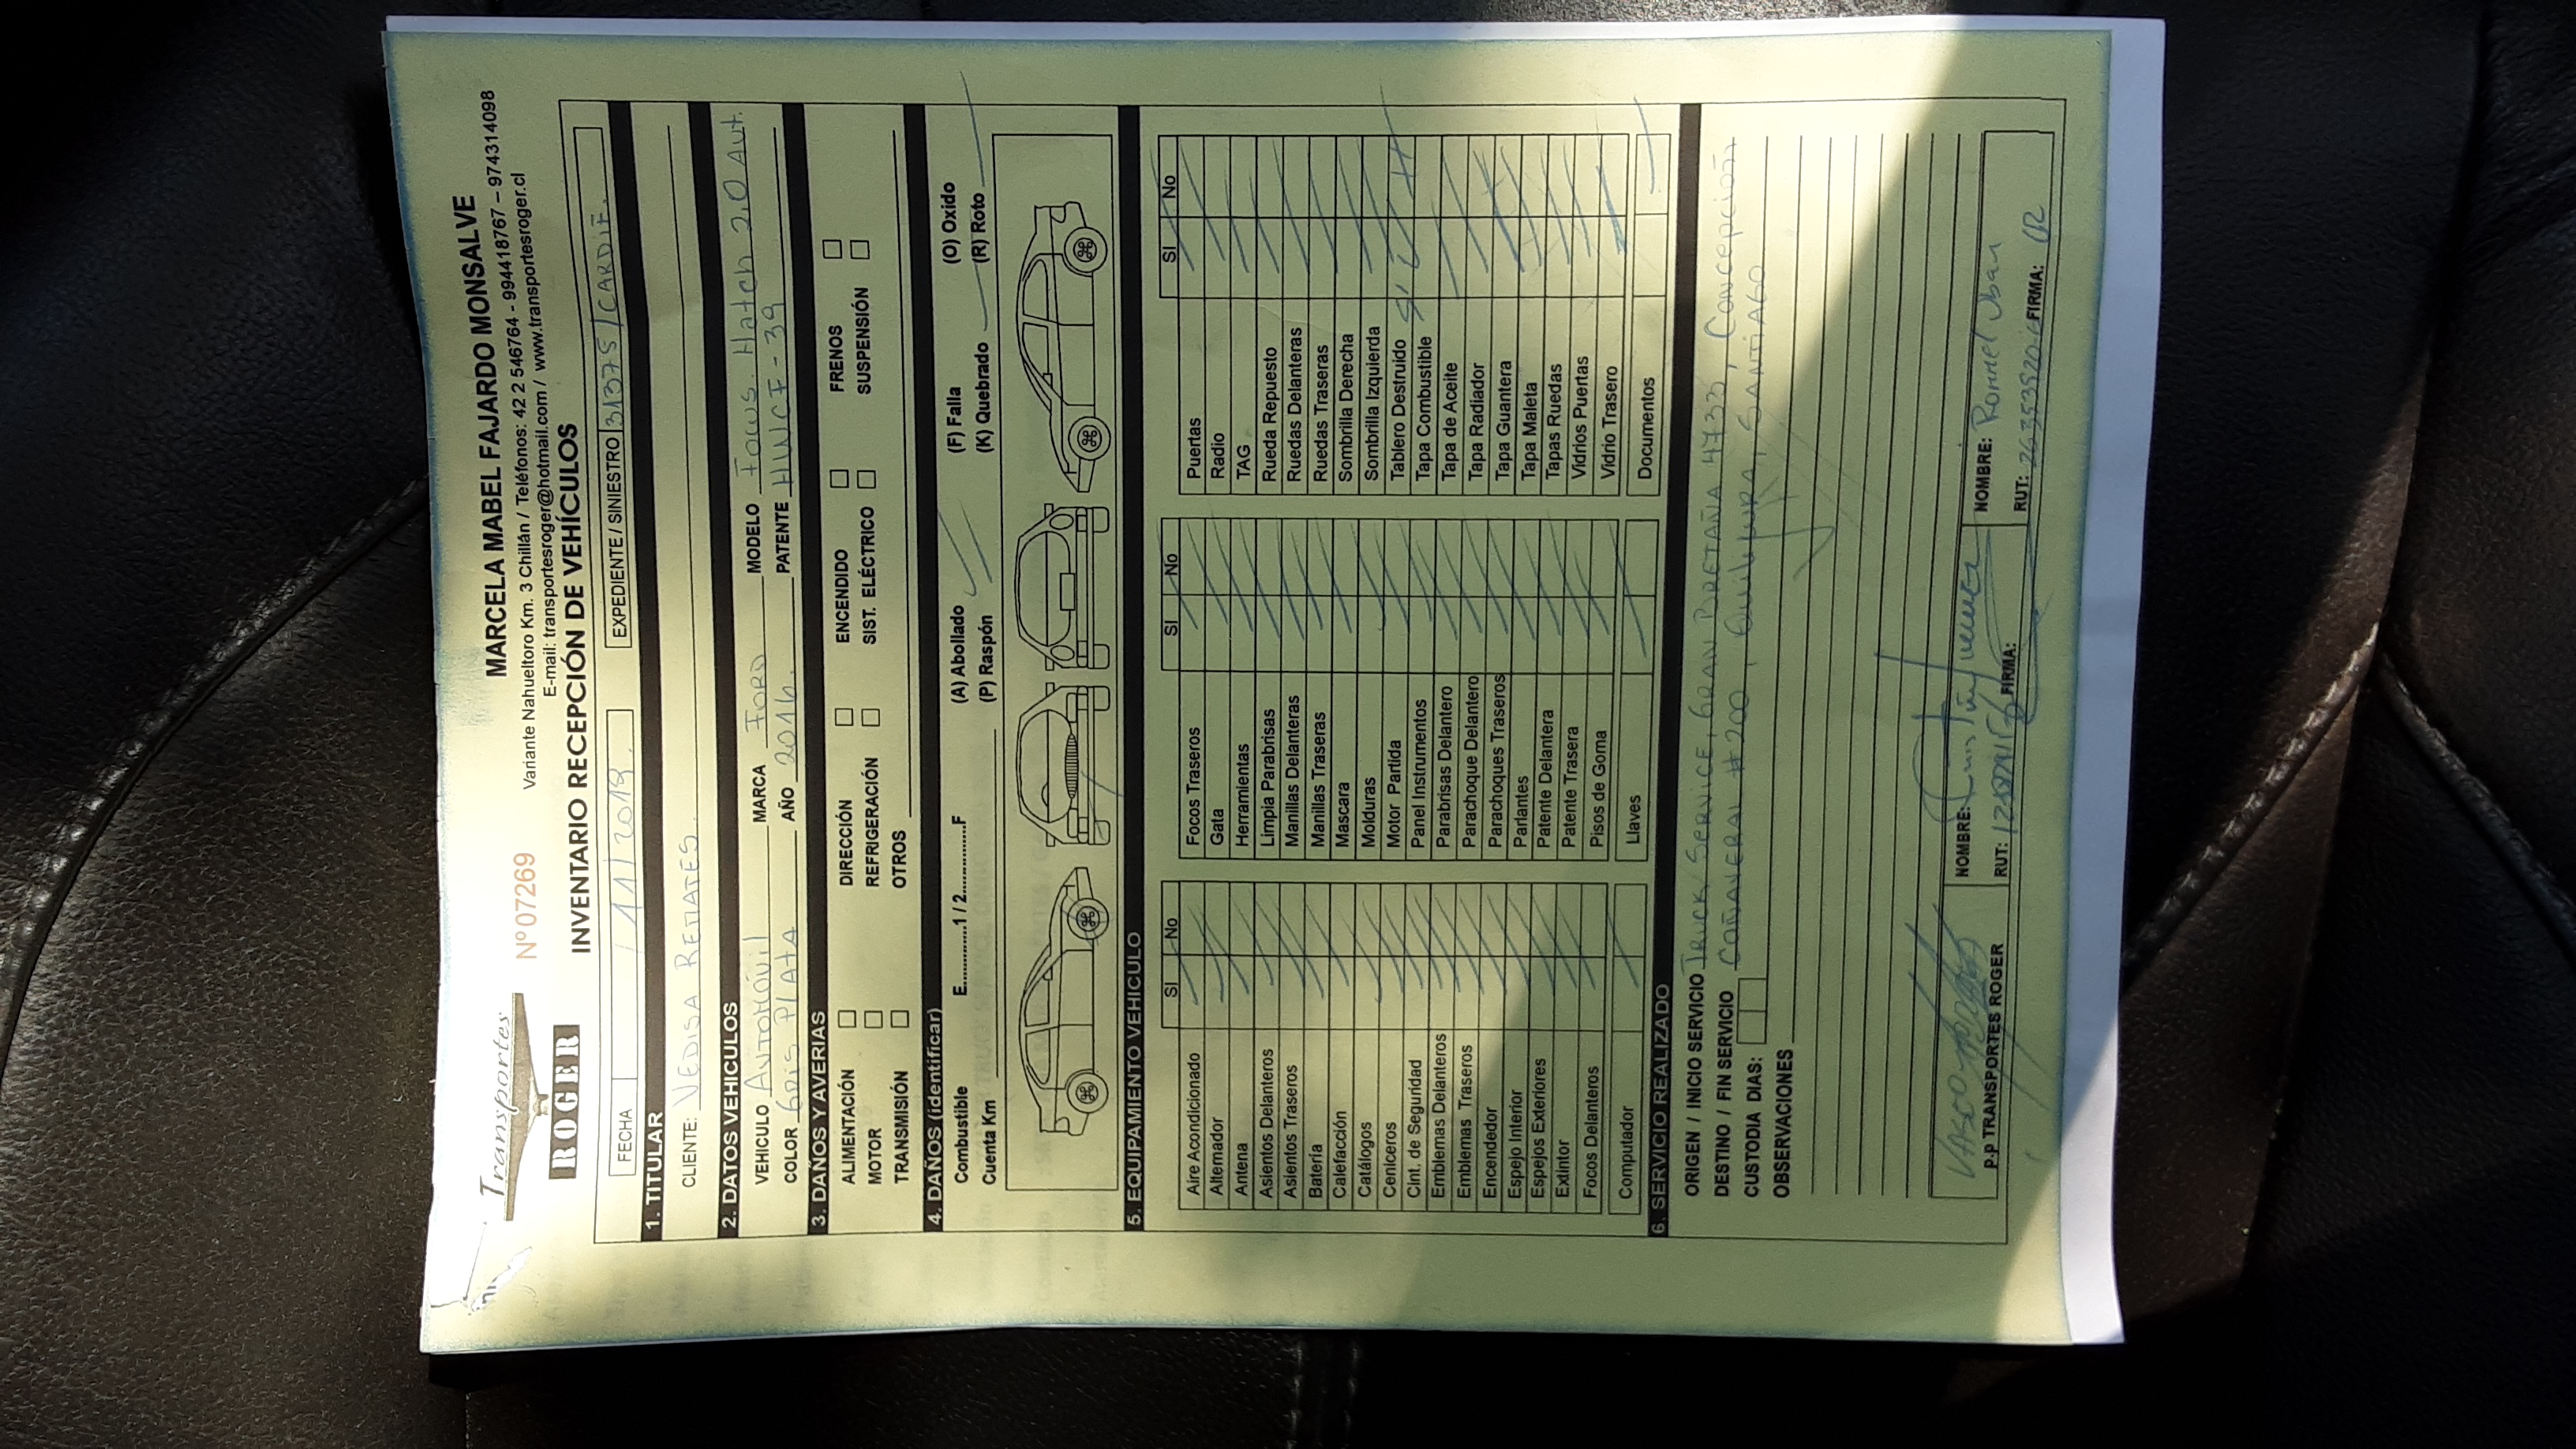 Transportes
ROGER
Nº 07269
MARCELA MABEL FAJARDO MONSALVE
Variante Nahueltoro Km. 3 Chillán / Teléfonos: 42 2 546764 - 994418767 – 974314098
E-mail: transportesroger@hotmail.com / www.transportesroger.cl
INVENTARIO RECEPCIÓN DE VEHÍCULOS
FECHA / 11 / 2019. EXPEDIENTE / SINIESTRO 313775 / CARDIF.
1. TITULAR
CLIENTE: VEDISA REMATES.
2. DATOS VEHICULOS
VEHICULO AUTOMÓVIL MARCA FORD MODELO Focus Hatch 2.0 Aut.
COLOR Gris PLATA AÑO 2016. PATENTE HWCF-39
3. DAÑOS Y AVERIAS
ALIMENTACIÓN DIRECCIÓN ENCENDIDO FRENOS
MOTOR REFRIGERACIÓN SIST. ELÉCTRICO SUSPENSIÓN
TRANSMISIÓN OTROS
4. DAÑOS (identificar)
Combustible E.............1 / 2.............F (A) Abollado (F) Falla (O) Oxido
Cuenta Km (P) Raspón (K) Quebrado (R) Roto
5. EQUIPAMIENTO VEHICULO
SI No SI No SI No
Aire Acondicionado Focos Traseros Puertas
Alternador Gata Radio
Antena Herramientas TAG
Asientos Delanteros Limpia Parabrisas Rueda Repuesto
Asientos Traseros Manillas Delanteras Ruedas Delanteras
Batería Manillas Traseras Ruedas Traseras
Calefacción Mascara Sombrilla Derecha
Catálogos Molduras Sombrilla Izquierda
Ceniceros Motor Partida Tablero Destruido
Cint. de Seguridad Panel Instrumentos Tapa Combustible
Emblemas Delanteros Parabrisas Delantero Tapa de Aceite
Emblemas Traseros Parachoque Delantero Tapa Radiador
Encendedor Parachoques Traseros Tapa Guantera
Espejo Interior Parlantes Tapa Maleta
Espejos Exteriores Patente Delantera Tapas Ruedas
Extintor Patente Trasera Vidrios Puertas
Focos Delanteros Pisos de Goma Vidrio Trasero
Computador Llaves Documentos
6. SERVICIO REALIZADO
ORIGEN / INICIO SERVICIO TRUCK SERVICE, GRAN BRETAÑA 4733, Concepción
DESTINO / FIN SERVICIO CAÑAVERAL #200, Quilicura, SANTIAGO
CUSTODIA DIAS:
OBSERVACIONES
P.P TRANSPORTES ROGER
NOMBRE: Luis
RUT: FIRMA:
NOMBRE: Ronnel
RUT: FIRMA: